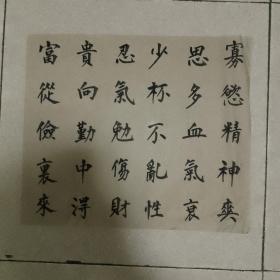 寡慾精神爽
思多血氣衰
少杯不亂性
忍氣勉傷財
貴向勤中得
富從儉裏來